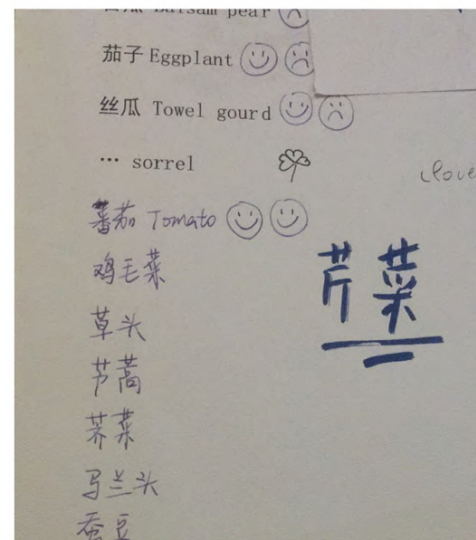 苦瓜 Balsam pear
茄子 Eggplant
丝瓜 Towel gourd
… sorrel
clove
番茄 Tomato
鸡毛菜
芹菜
草头
芦蒿
荠菜
马兰头
蚕豆